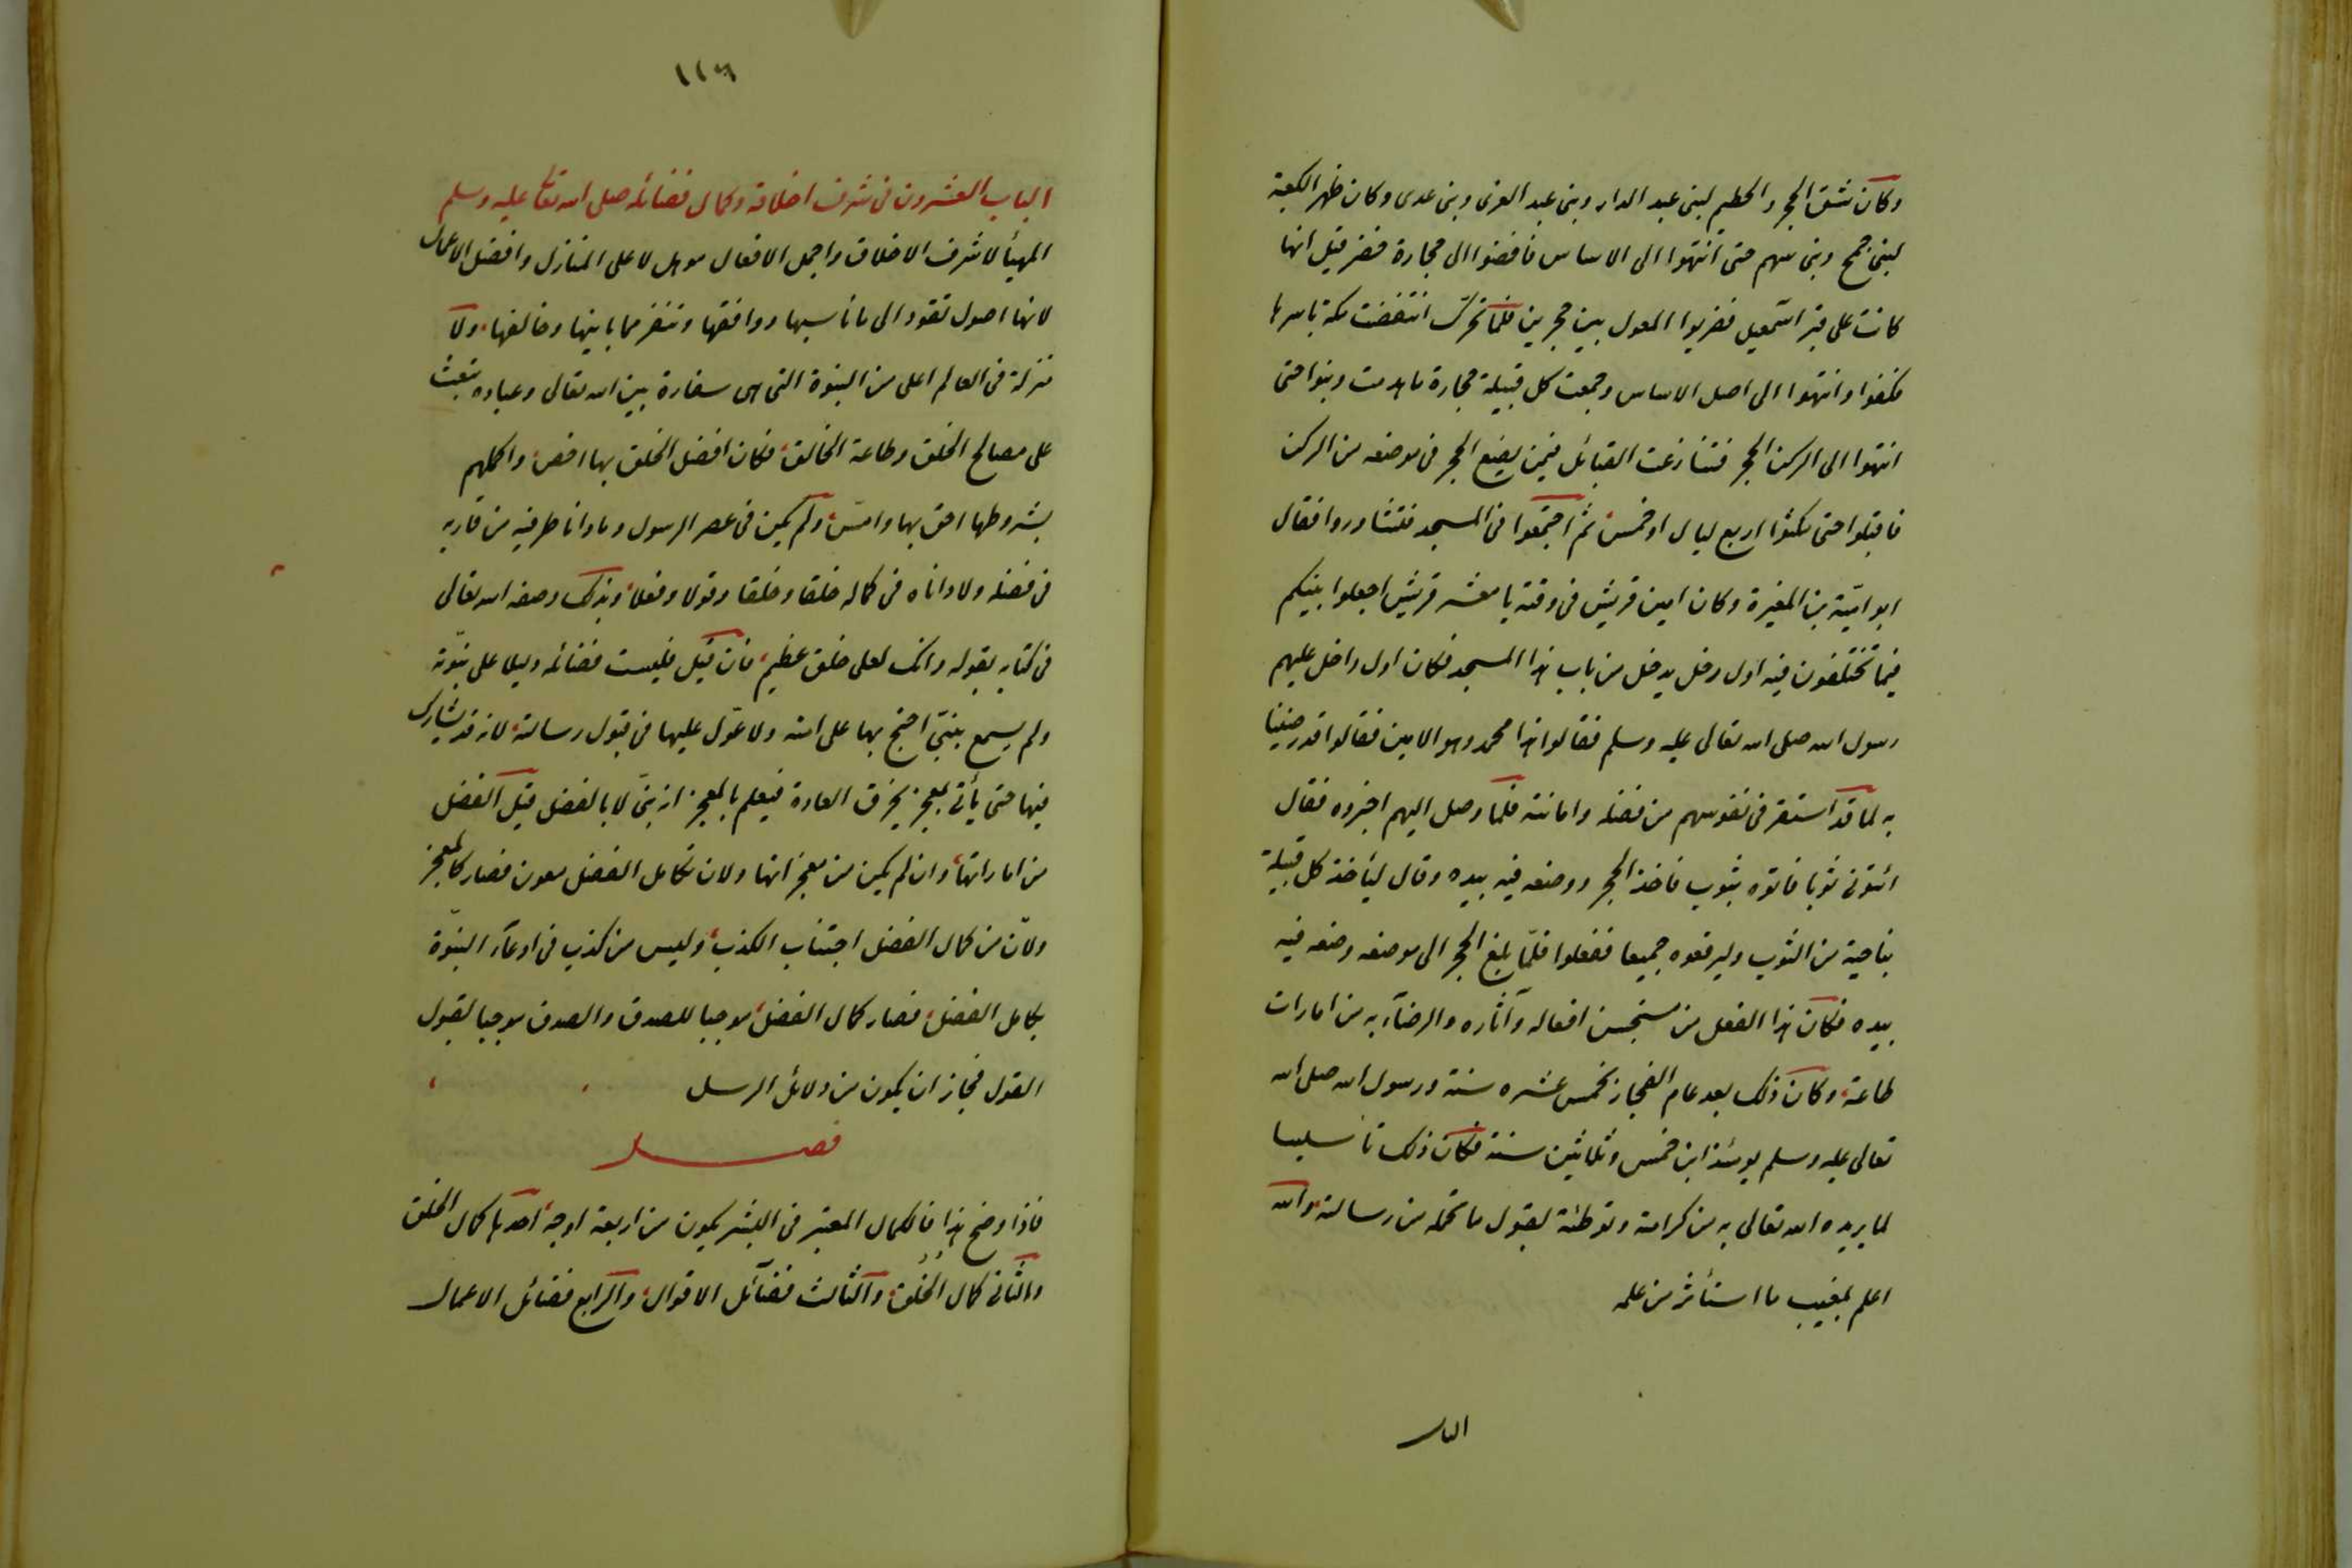 وكان شق الحجر والحطيم لبنى عبد الدار وبنى عبد العزى وبنى عدى وكان ظهر الكعبة
لبنى جمح وبنى سهم حتى انتهوا الى الاساس فافضوا الى حجارة خضر قيل انها
كانت على قبر اسمعيل فضربوا المعول بين حجرين فلما تحرك انتفضت مكة باسرها
فكفوا وانتهوا الى اصل الاساس وجمعت كل قبيلة حجارة ما هدمت وبنوا حتى
انتهوا الى الركن الحجر فتنازعت القبائل فيمن يضع الحجر فى موضعه من الركن
فاقبلوا حتى مكثوا اربع ليال او خمس ثم اجتمعوا فى المسجد فتشاوروا فقال
ابو اميّة بن المغيرة وكان امين قريش فى وقته يا معشر قريش اجعلوا بينكم
فيما تختلفون فيه اول رجل يدخل من باب هذا المسجد فكان اول داخل عليهم
رسول الله صلى الله تعالى عليه وسلم فقالوا هذا محمد وهو الامين فقالوا قد رضينا
به لما قد استقر فى نفوسهم من فضله وامانته فلما وصل اليهم اخبروه فقال
ائتونى ثوبا فاتوه بثوب فاخذ الحجر ووضعه فيه بيده وقال ليأخذ كل قبيلة
بناحية من الثوب وليرفعوه جميعا ففعلوا فلمّا بلغ الحجر الى موضعه وضعه فيه
بيده فكان هذا الفعل من مستحسن افعاله وآثاره والرضآء به من امارات
طاعته وكان ذلك بعد عام الفجار بخمس عشره سنة ورسول الله صلى الله
تعالى عليه وسلم يومئذ ابن خمس وثلاثين سنة فكان ذلك تأسيسا
لما يريده الله تعالى به من كرامته وتوطئة لقبول ما تحمله من رسالته والله
اعلم بمغيب ما استأثر من علمه
الباب
١١٦
الباب العشرون فى شرف اخلاقه وكمال فضائله صلى الله تعالى عليه وسلم
المهيأ لاشرف الاخلاق واجمل الافعال موهل لاعلى المنازل وافضل الاعمال
لانها اصول تقود الى ما ناسبها ووافقها وتنفر مما باينها وخالفها، ولا
منزلة فى العالم اعلى من النبوة التى هى سفارة بين الله تعالى وعباده تبعث
على مصالح الخلق وطاعة الخالق، فكان افضل الخلق بها اخص، واكملهم
بشروطها احق بها وامسّ، ولم يكن فى عصر الرسول وما دانا طرفيه من قاربه
فى فضله ولا داناه فى كماله خلقا وخلقا وقولا وفعلا، وبذلك وصفه الله تعالى
فى كتابه بقوله وانك لعلى خلق عظيم، فان قيل فليست فضائله دليلا على نبوّته
ولم يسمع بنبىّ احتج بها على امته ولا عوّل عليها فى قبول رسالته، لانه قد يشارك
فيها حتى يأتى بمعجز يخرق العادة فيعلم بالمعجز انه نبىّ لا بالفضل قيل الفضل
من اماراتها، وان لم يكن من معجزاتها ولان تكامل الفضل معوز فصار كالمعجز
ولانّ من كمال الفضل اجتناب الكذب، وليس من كذب فى ادعآء النبوّة
بكامل الفضل، فصار كمال الفضل، موجبا للصدق والصدق موجبا لقبول
القول فجاز ان يكون من دلائل الرسل
فصل
فاذا وضح هذا فالكمال المعتبر فى البشر يكون من اربعة اوجه، احدها كمال الخلق
والثانى كمال الخُلُق، والثالث فضآئل الاقوال، والرابع فضائل الاعمال